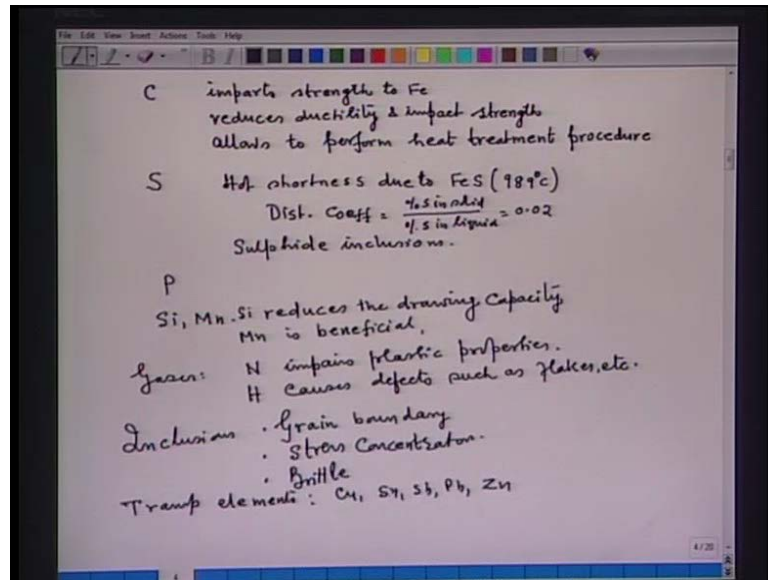 File Edit View Insert Actions Tools Help
C imparts strength to Fe
reduces ductility & impact strength
allows to perform heat treatment procedure
S Hot shortness due to FeS (989°C)
Dist. Coeff = %S in solid / %S in liquid = 0.02
Sulphide inclusions.
P
Si, Mn. Si reduces the drawing capacity,
Mn is beneficial.
Gases: N impairs plastic properties.
H causes defects such as flakes, etc.
Inclusions . Grain boundary
. Stress Concentrator.
. Brittle
Tramp elements : Cu, Sn, Sb, Pb, Zn
4/20